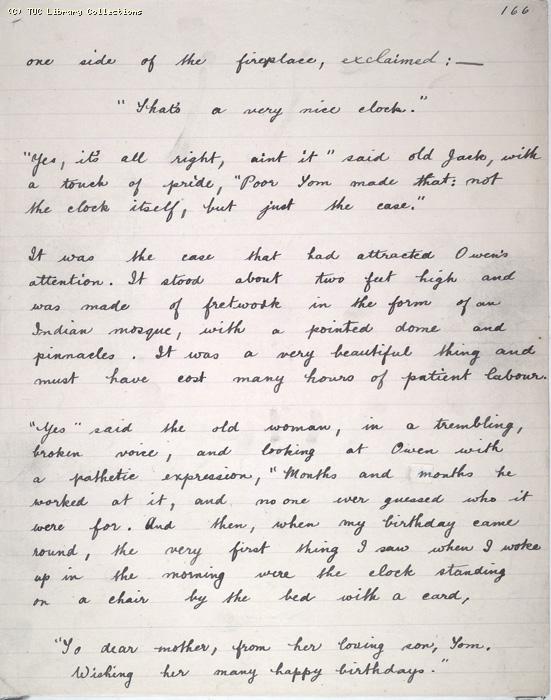 (C) TUC Library Collections
166
one side of the fireplace, exclaimed :—
"That's a very nice clock."
"Yes, it's all right, aint it" said old Jack, with
a touch of pride, "Poor Tom made that: not
the clock itself, but just the case."
It was the case that had attracted Owen's
attention. It stood about two feet high and
was made of fretwork in the form of an
Indian mosque, with a pointed dome and
pinnacles. It was a very beautiful thing and
must have cost many hours of patient labour.
"Yes" said the old woman, in a trembling,
broken voice, and looking at Owen with
a pathetic expression, "Months and months he
worked at it, and no one ever guessed who it
were for. And then, when my birthday came
round, the very first thing I saw when I woke
up in the morning were the clock standing
on a chair by the bed with a card,
"To dear mother, from her loving son, Tom.
Wishing her many happy birthdays."